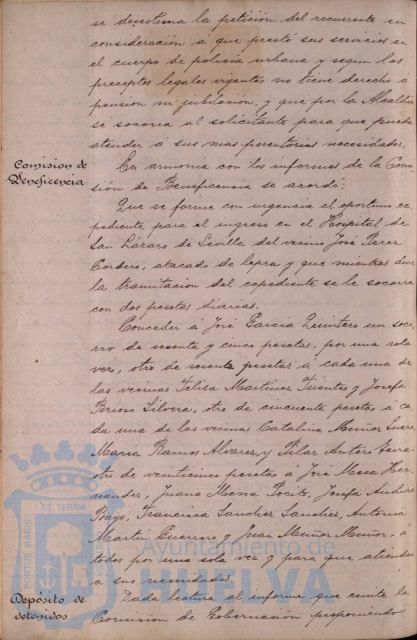 se desestima la petición del recurrente en
consideración á que prestó sus servicios en
el cuerpo de policia urbana y segun los
preceptos legales vigentes no tiene derecho á
pension ni jubilación, y que por la Alcaldia
se socorra al solicitante para que pueda
atender á sus mas perentorias necesidades.
Comision de
Beneficencia
En armonia con los informes de la Comi
sión de Beneficencia se acordó:
Que se forme con urgencia el oportuno ex
pediente para el ingreso en el Hospital de
San Lázaro de Sevilla del vecino José Perez
Cordero, atacado de lepra y que mientras dure
la tramitacion del expediente se le socorra
con dos pesetas diarias.
Conceder á José Garcia Quintero un soco
rro de sesenta y cinco pesetas, por una sola
vez, otro de sesenta pesetas á cada una de
las vecinas Felisa Martinez Fuentes y Josefa
Silvera, otro de cincuenta pesetas á ca
da una de las vecinas Catalina Muñoz
Maria Ramos Alvarez y Pilar
otro de veinticinco pesetas á José Mesa Her
nandez, Juana Josefa
Bayo, Francisca Sanchez Sanchez, Antonia
Martin Guerrero y Juan Muñoz Muñoz, á
todos por una sola vez y para que atiendan
á sus necesidades.
Depósito de
detenidos
Dada lectura al informe que emite la
Comision de Gobernación proponiendo
EL TERRA
PORTUS MARIS
Ayuntamiento de
HUELVA